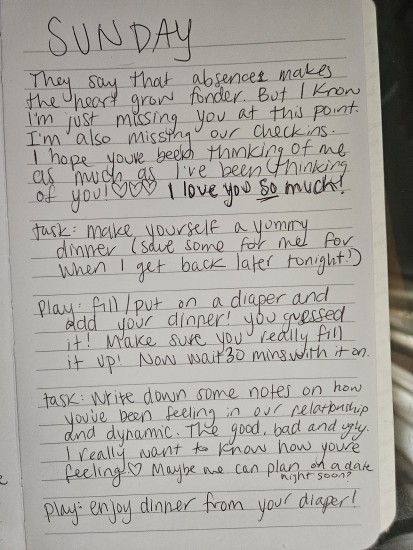 SUNDAY
They say that absences makes
the heart grow fonder. But I know
I'm just missing you at this point.
I'm also missing our checkins.
I hope youve been thinking of me
as much as I've been thinking
of you!♡♡♡ I love you so much!
task: make yourself a yummy
dinner (save some for me for
when I get back later tonight!)
play: fill/put on a diaper and
add your dinner! you guessed
it! Make sure you really fill
it up! Now wait 30 mins with it on.
task: Write down some notes on how
you've been feeling in our relationship
and dynamic. The good, bad and ugly.
I really want to know how you're
feeling♡ Maybe we can plan on a date
night soon?
play: enjoy dinner from your diaper!